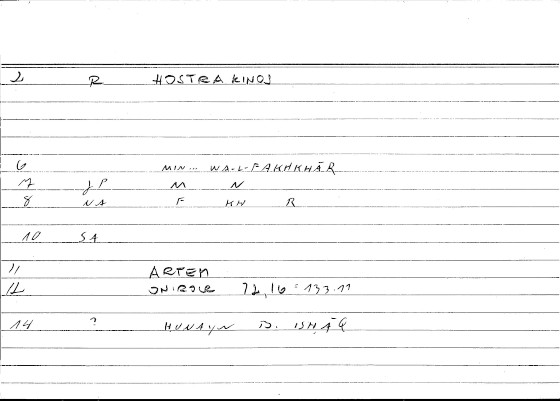 2 R HOSTRAKINOS
6 MIN... WA-L-FAKHKHĀR
7 JP M N
8 NA F KH R
10 SA
11 ARTEM
12 ONIROCR 72,16 = 133.11
14 ? HUNAYN B. ISHĀQ